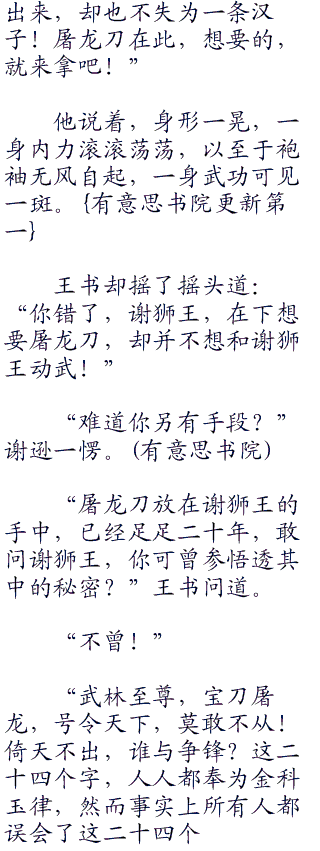 出来，却也不失为一条汉
子！屠龙刀在此，想要的，
就来拿吧！”
他说着，身形一晃，一
身内力滚滚荡荡，以至于袍
袖无风自起，一身武功可见
一斑。{有意思书院更新第
一}
王书却摇了摇头道：
“你错了，谢狮王，在下想
要屠龙刀，却并不想和谢狮
王动武！”
“难道你另有手段？”
谢逊一愣。(有意思书院)
“屠龙刀放在谢狮王的
手中，已经足足二十年，敢
问谢狮王，你可曾参悟透其
中的秘密？”王书问道。
“不曾！”
“武林至尊，宝刀屠
龙，号令天下，莫敢不从！
倚天不出，谁与争锋？这二
十四个字，人人都奉为金科
玉律，然而事实上所有人都
误会了这二十四个